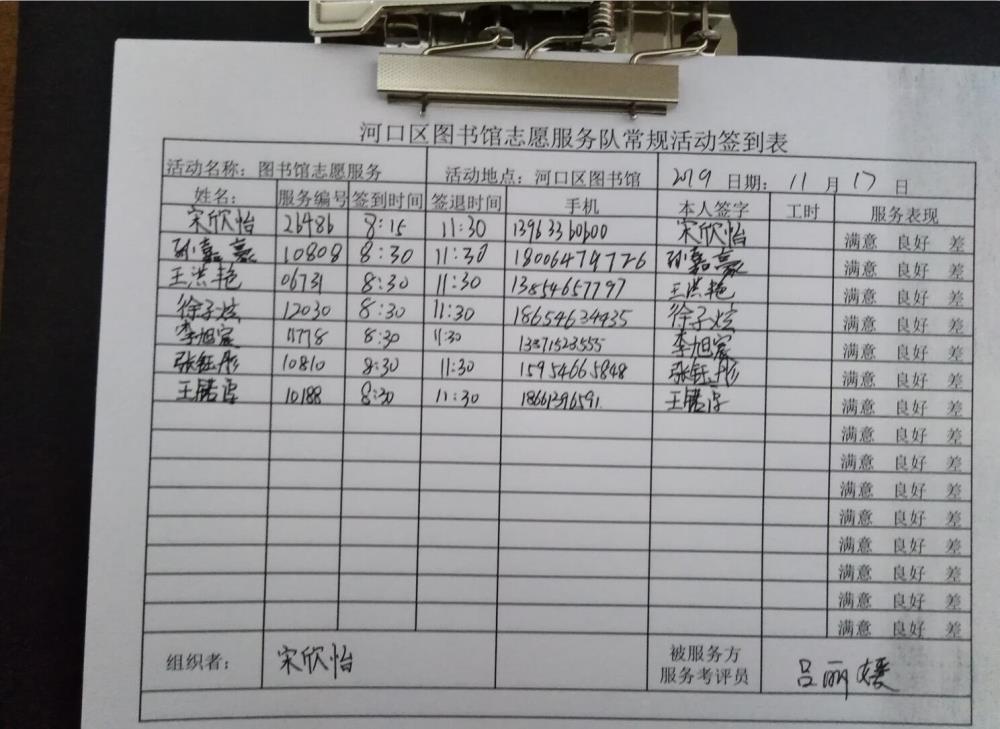 河口区图书馆志愿服务队常规活动签到表
活动名称：图书馆志愿服务 活动地点：河口区图书馆 2019 日期： 11 月 17 日
姓名： 服务编号 签到时间 签退时间 手机 本人签字 工时 服务表现
宋欣怡 26486 8:15 11:30 13963360600 宋欣怡 满意 良好 差
孙嘉豪 10808 8:30 11:30 18006479776 孙嘉豪 满意 良好 差
王洪艳 06731 8:30 11:30 13854657797 王洪艳 满意 良好 差
徐子炫 12030 8:30 11:30 18654634435 徐子炫 满意 良好 差
李旭宸 11778 8:30 11:30 13371523555 李旭宸 满意 良好 差
张钰彤 10810 8:30 11:30 15954665848 张钰彤 满意 良好 差
王 10188 8:30 11:30 18661396591 王 满意 良好 差
满意 良好 差
满意 良好 差
满意 良好 差
满意 良好 差
满意 良好 差
满意 良好 差
满意 良好 差
满意 良好 差
组织者： 宋欣怡 被服务方
服务考评员 吕丽媛